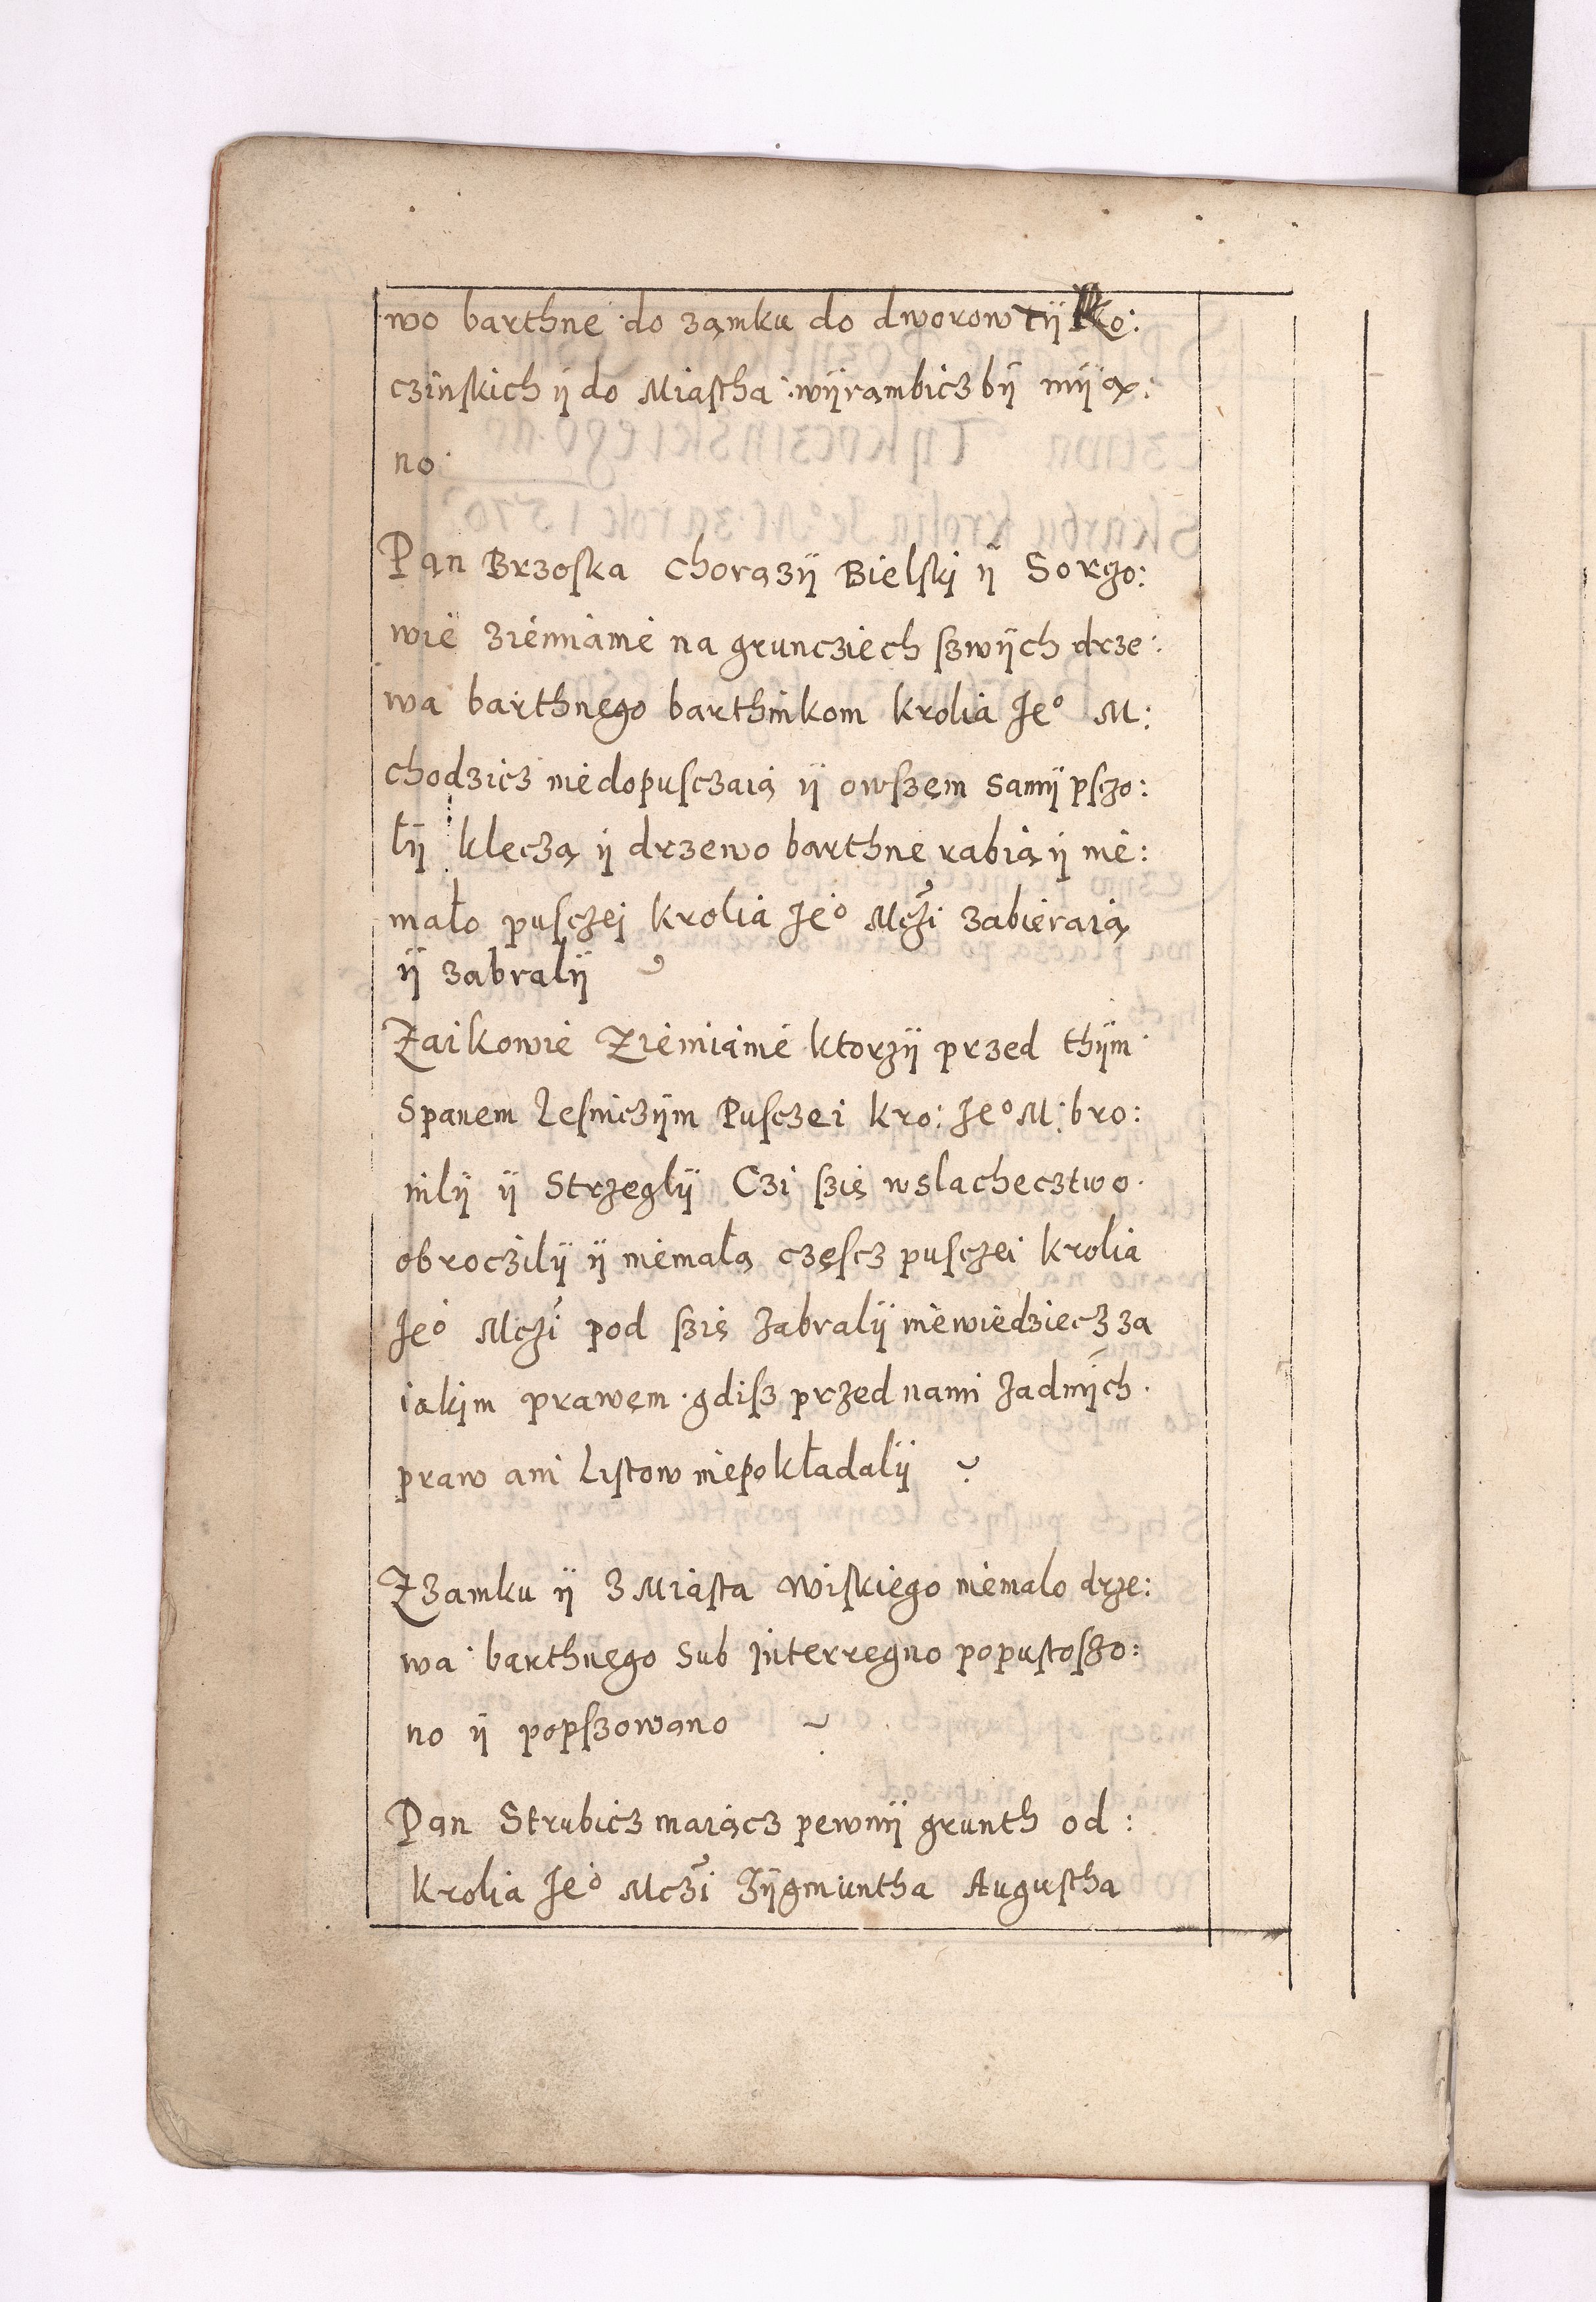 wo barthne do zamku do dworow Tÿko:
czinskich ÿ do Miastha wÿrambicz bÿ mÿa:
no
Pan Brzoska Chorązÿ Bielski ÿ Sorgo:
wie ziemianie na gruncziech szwÿch drze:
wa barthnego barthnikom krolia Jeº M:
chodzicz niedopusczaią ÿ owszem samÿ psczo:
łÿ kleczą ÿ drzewo barthne rabią ÿ nie:
mało pusczei krolia Jeº Mczi zabieraią
ÿ zabralÿ
Zaikowie Ziemianie ktorzÿ przed thÿm
Spanem Lesniczÿm Pusczei kro: Jeº M: bro:
nilÿ ÿ Strzeglÿ Czi szię wslachecztwo
obroczilÿ ÿ niemałą częscz pusczei krolia
Jeº Mczi pod szię zabralÿ niewiedziecz za
iakim prawem gdisz przed nami zadnÿch
praw ani Listow niepokładalÿ
Z zamku ÿ z Miasta Wiskiego niemalo drze:
wa barthnego Sub interregno popustoszo:
no ÿ popszowano
Pan Strubicz maiącz pewnÿ grunth od:
krolia Jeº Mczi Zÿgmuntha Augustha